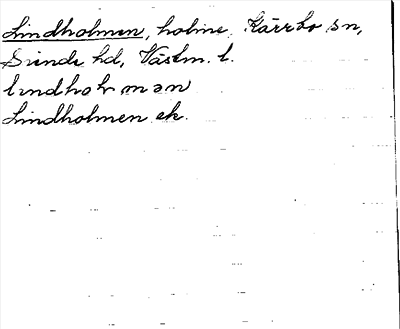 Lindholmen, holme, Kärrbo sn,
Siende hd, Västm. l.
lındhoƚmən
Lindholmen ek.